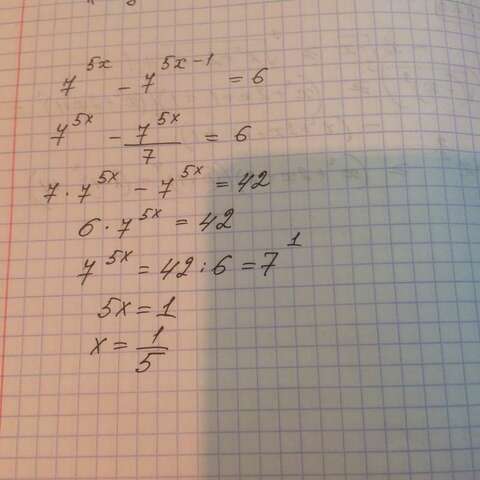 7^{5x} - 7^{5x-1} = 6
7^{5x} - \frac{7^{5x}}{7} = 6
7 · 7^{5x} - 7^{5x} = 42
6 · 7^{5x} = 42
7^{5x} = 42 : 6 = 7^1
5x = 1
x = \frac{1}{5}